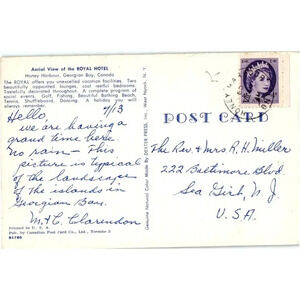 Aerial View of the ROYAL HOTEL
Honey Harbour, Georgian Bay, Canada
The ROYAL offers you unexcelled vacation facilities. Two
beautifully appointed lounges, cool restful bedrooms.
Tastefully decorated throughout. A complete program of
social events. Golf, Fishing, Beautiful Bathing Beach,
Tennis, Shuffleboard, Dancing. A holiday you will
always remember.
Hello, 7/13
we are having a
grand time here
no rain — This
picture is typical
of the landscape
of the islands in
Georgian Bay.
M+C. Clarendon
Printed in U. S. A.
Pub. by Canadian Post Card Co., Ltd., Toronto 3
Genuine Natural Color Made By DEXTER PRESS, Inc., West Nyack, N. Y.
POST CARD
The Rev. & Mrs R. H. Miller
222 Baltimore Blvd
Sea Girt, N. J.
U. S. A.